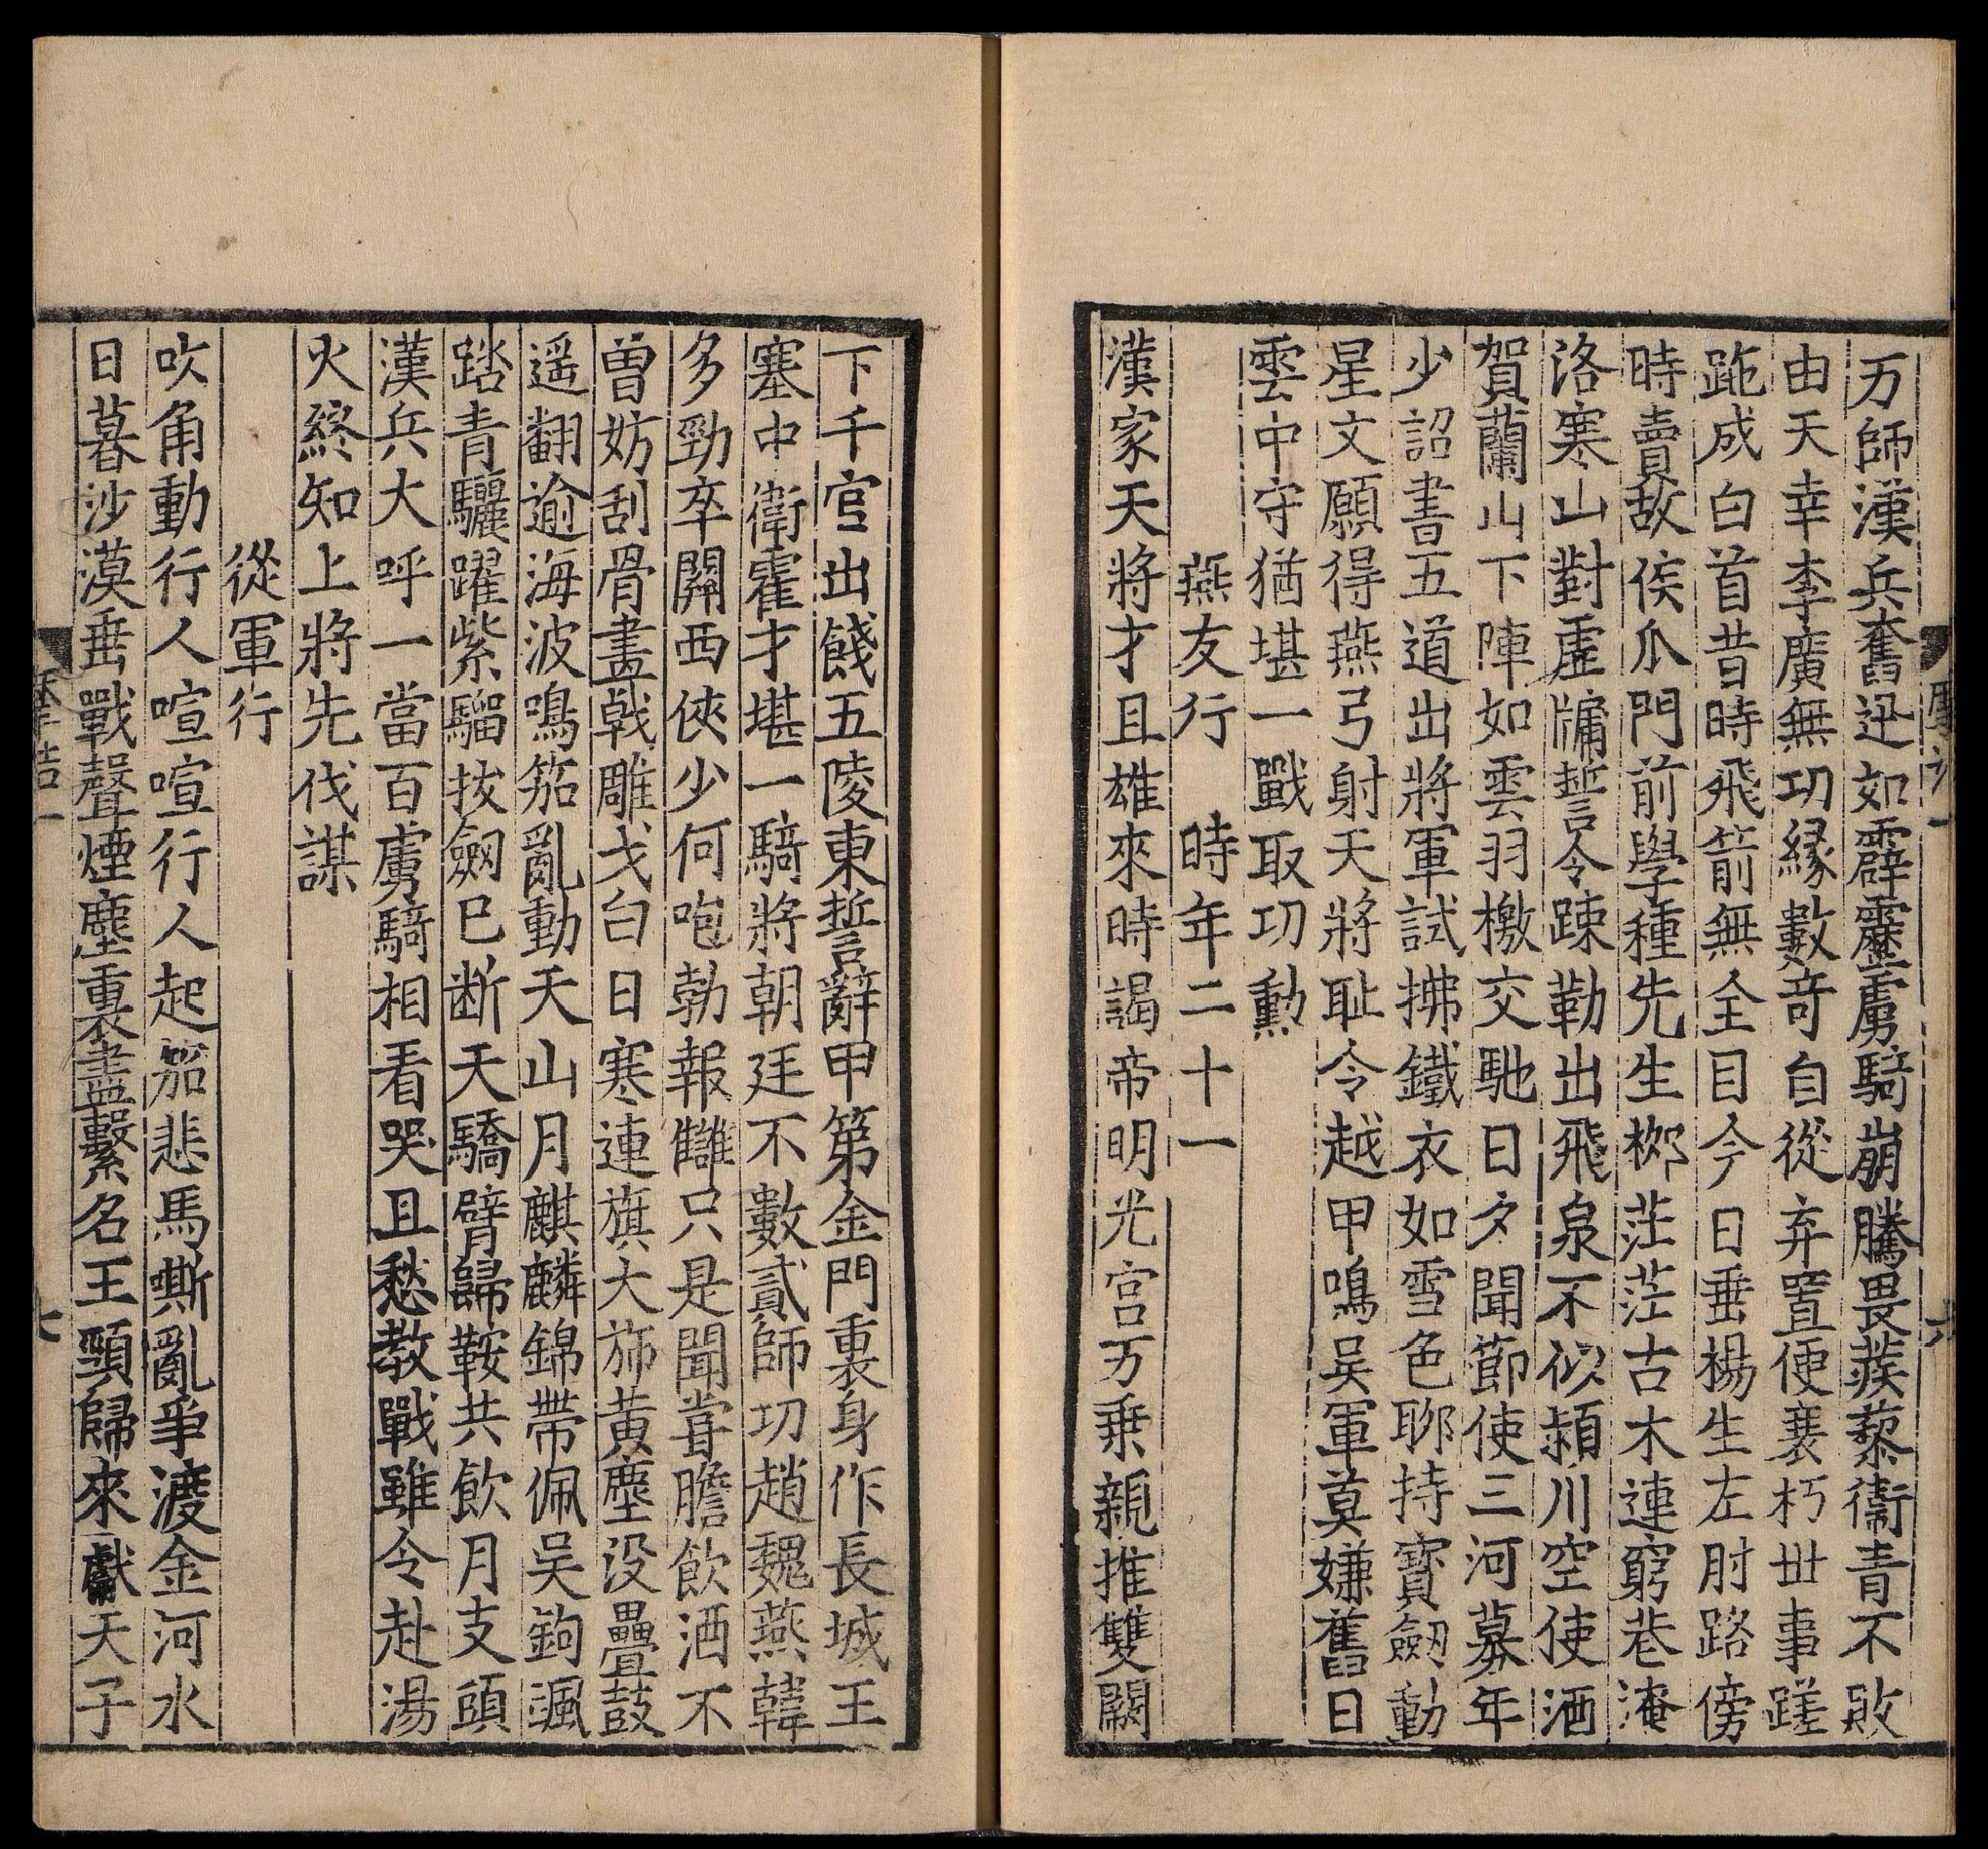 万師漢兵奮迅如霹靂虜騎崩騰畏蒺藜衛青不敗
由天幸李廣無功緣數奇自從弃置便衰朽丗事蹉
跎成白首昔時飛箭無全目今日垂楊生左肘路傍
時賣故侯瓜門前學種先生桺茫茫古木連窮巷淹
洛寒山對虛牗誓令踈勒出飛泉不似潁川空使酒
賀蘭山下陣如雲羽檄交馳日夕聞節使三河募年
少詔書五道出將軍試拂鐵衣如雪色聊持寳劒動
星文願得燕弓射天將耻令越甲鳴吴軍莫嫌舊日
雲中守猶堪一戰取功勲
燕友行 時年二十一
漢家天將才且雄來時謁帝明光宫万乗親推雙闕
下千官出餞五陵東誓辭甲第金門裏身作長城玉
塞中衛霍才堪一騎將朝廷不數貳師功趙魏燕韓
多勁卒關西俠少何咆勃報讎只是聞甞膽飲酒不
曽妨刮骨畫戟雕戈白日寒連旗大斾黄塵没疊鼓
遥翻逾海波鳴笳亂動天山月麒麟錦帶佩吴鉤颯
踏青驪躍紫騮拔劒已断天驕臂歸鞍共飲月支頭
漢兵大呼一當百虜騎相看哭且愁教戰雖令赴湯
火終知上將先伐謀
從軍行
吹角動行人喧喧行人起笳悲馬嘶亂爭渡金河水
日暮沙漠垂戰聲煙塵裏盡繫名王頸歸來獻天子